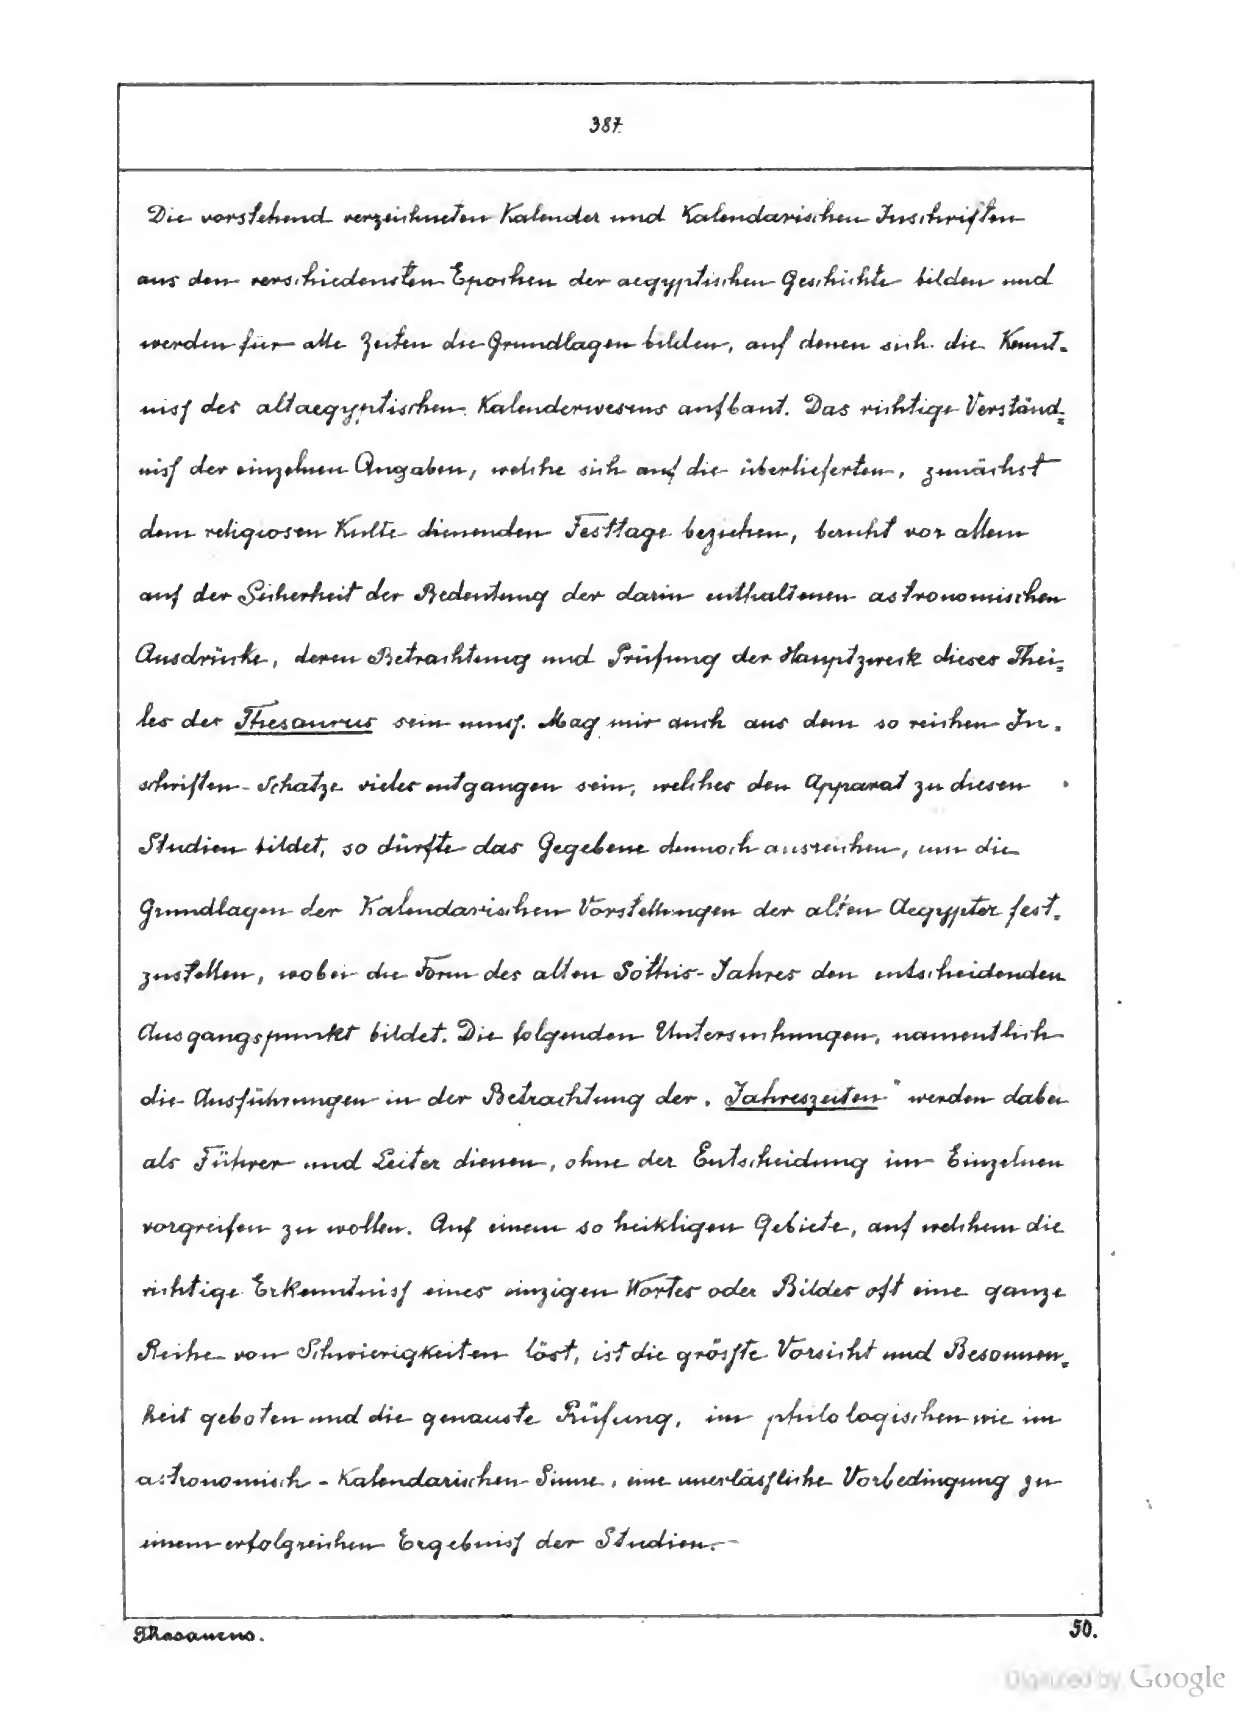 387
Die vorstehend verzeichneten Kalender und Kalendarischen Inschriften
aus den verschiedensten Epochen der aegyptischen Geschichte bilden und
werden für alle Zeiten die Grundlagen bilden, auf denen sich die Kennt-
niss des altaegyptischen Kalenderwesens aufbaut. Das richtige Verständ-
niss der einzelnen Angaben, welche sich auf die überlieferten, zunächst
dem religiosen Kulte dienenden Festtage beziehen, beruht vor allem
auf der Sicherheit der Bedeutung der darin enthaltenen astronomischen
Ausdrücke, deren Betrachtung und Prüfung der Hauptzweck dieses Thei-
les des Thesaurus sein muss. Mag mir auch aus dem so reichen In-
schriften-Schatze vieles entgangen sein, welches den Apparat zu diesen
Studien bildet, so dürfte das Gegebene dennoch ausreichen, um die
Grundlagen der Kalendarischen Vorstellungen der alten Aegypter fest-
zustellen, wobei die Form des alten Sothis-Jahres den entscheidenden
Ausgangspunkt bildet. Die folgenden Untersuchungen, namentlich
die Ausführungen in der Betrachtung der „Jahreszeiten" werden dabei
als Führer und Leiter dienen, ohne der Entscheidung im Einzelnen
vorgreifen zu wollen. Auf einem so heikligen Gebiete, auf welchem die
richtige Erkenntniss eines einzigen Wortes oder Bildes oft eine ganze
Reihe von Schwierigkeiten löst, ist die grösste Vorsicht und Besonnen-
heit geboten und die genauste Prüfung, im philologischen wie im
astronomisch-Kalendarischen Sinne, eine unerlässliche Vorbedingung zu
einem erfolgreichen Ergebniss der Studien.-
Thesaurus.
50.
Digitized by Google